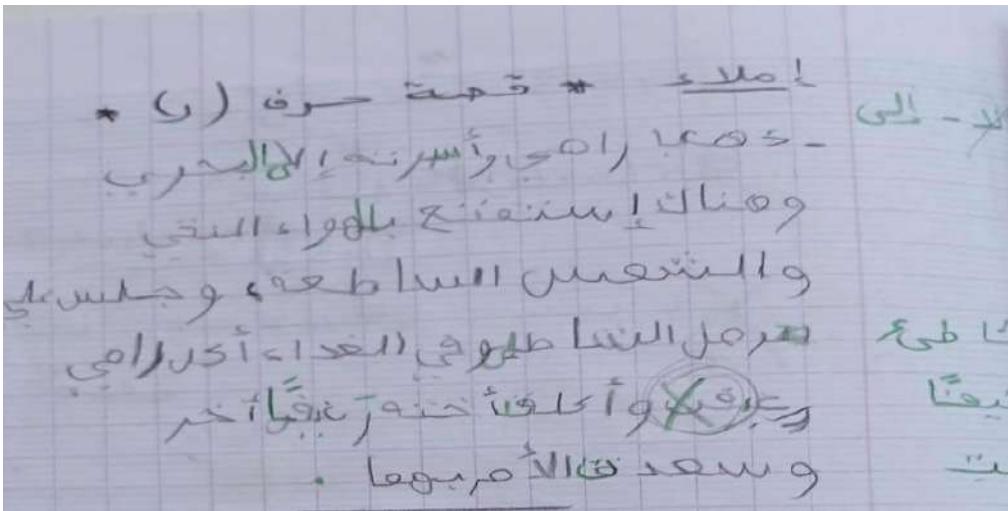 إملاء * قصة حرف (ر) *
- ذهب رامي وأسرته إلى البحر
وهناك إستمتع بالهواء النقي
والشمس الساطعة وجلس على
رمل الشاطئ وفي الغداء أكل رامي
رغيف وأكلت أخته رغيفًا أخر
وسعدت الأم بهما .
إلى